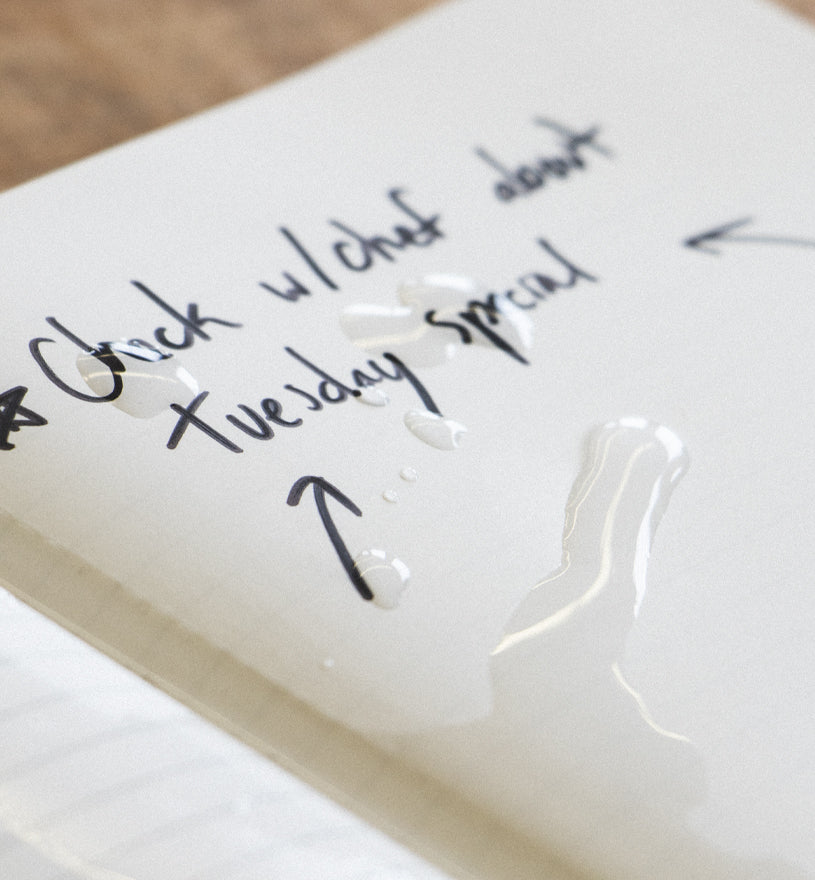 ☆ Check w/chef about
Tuesday special